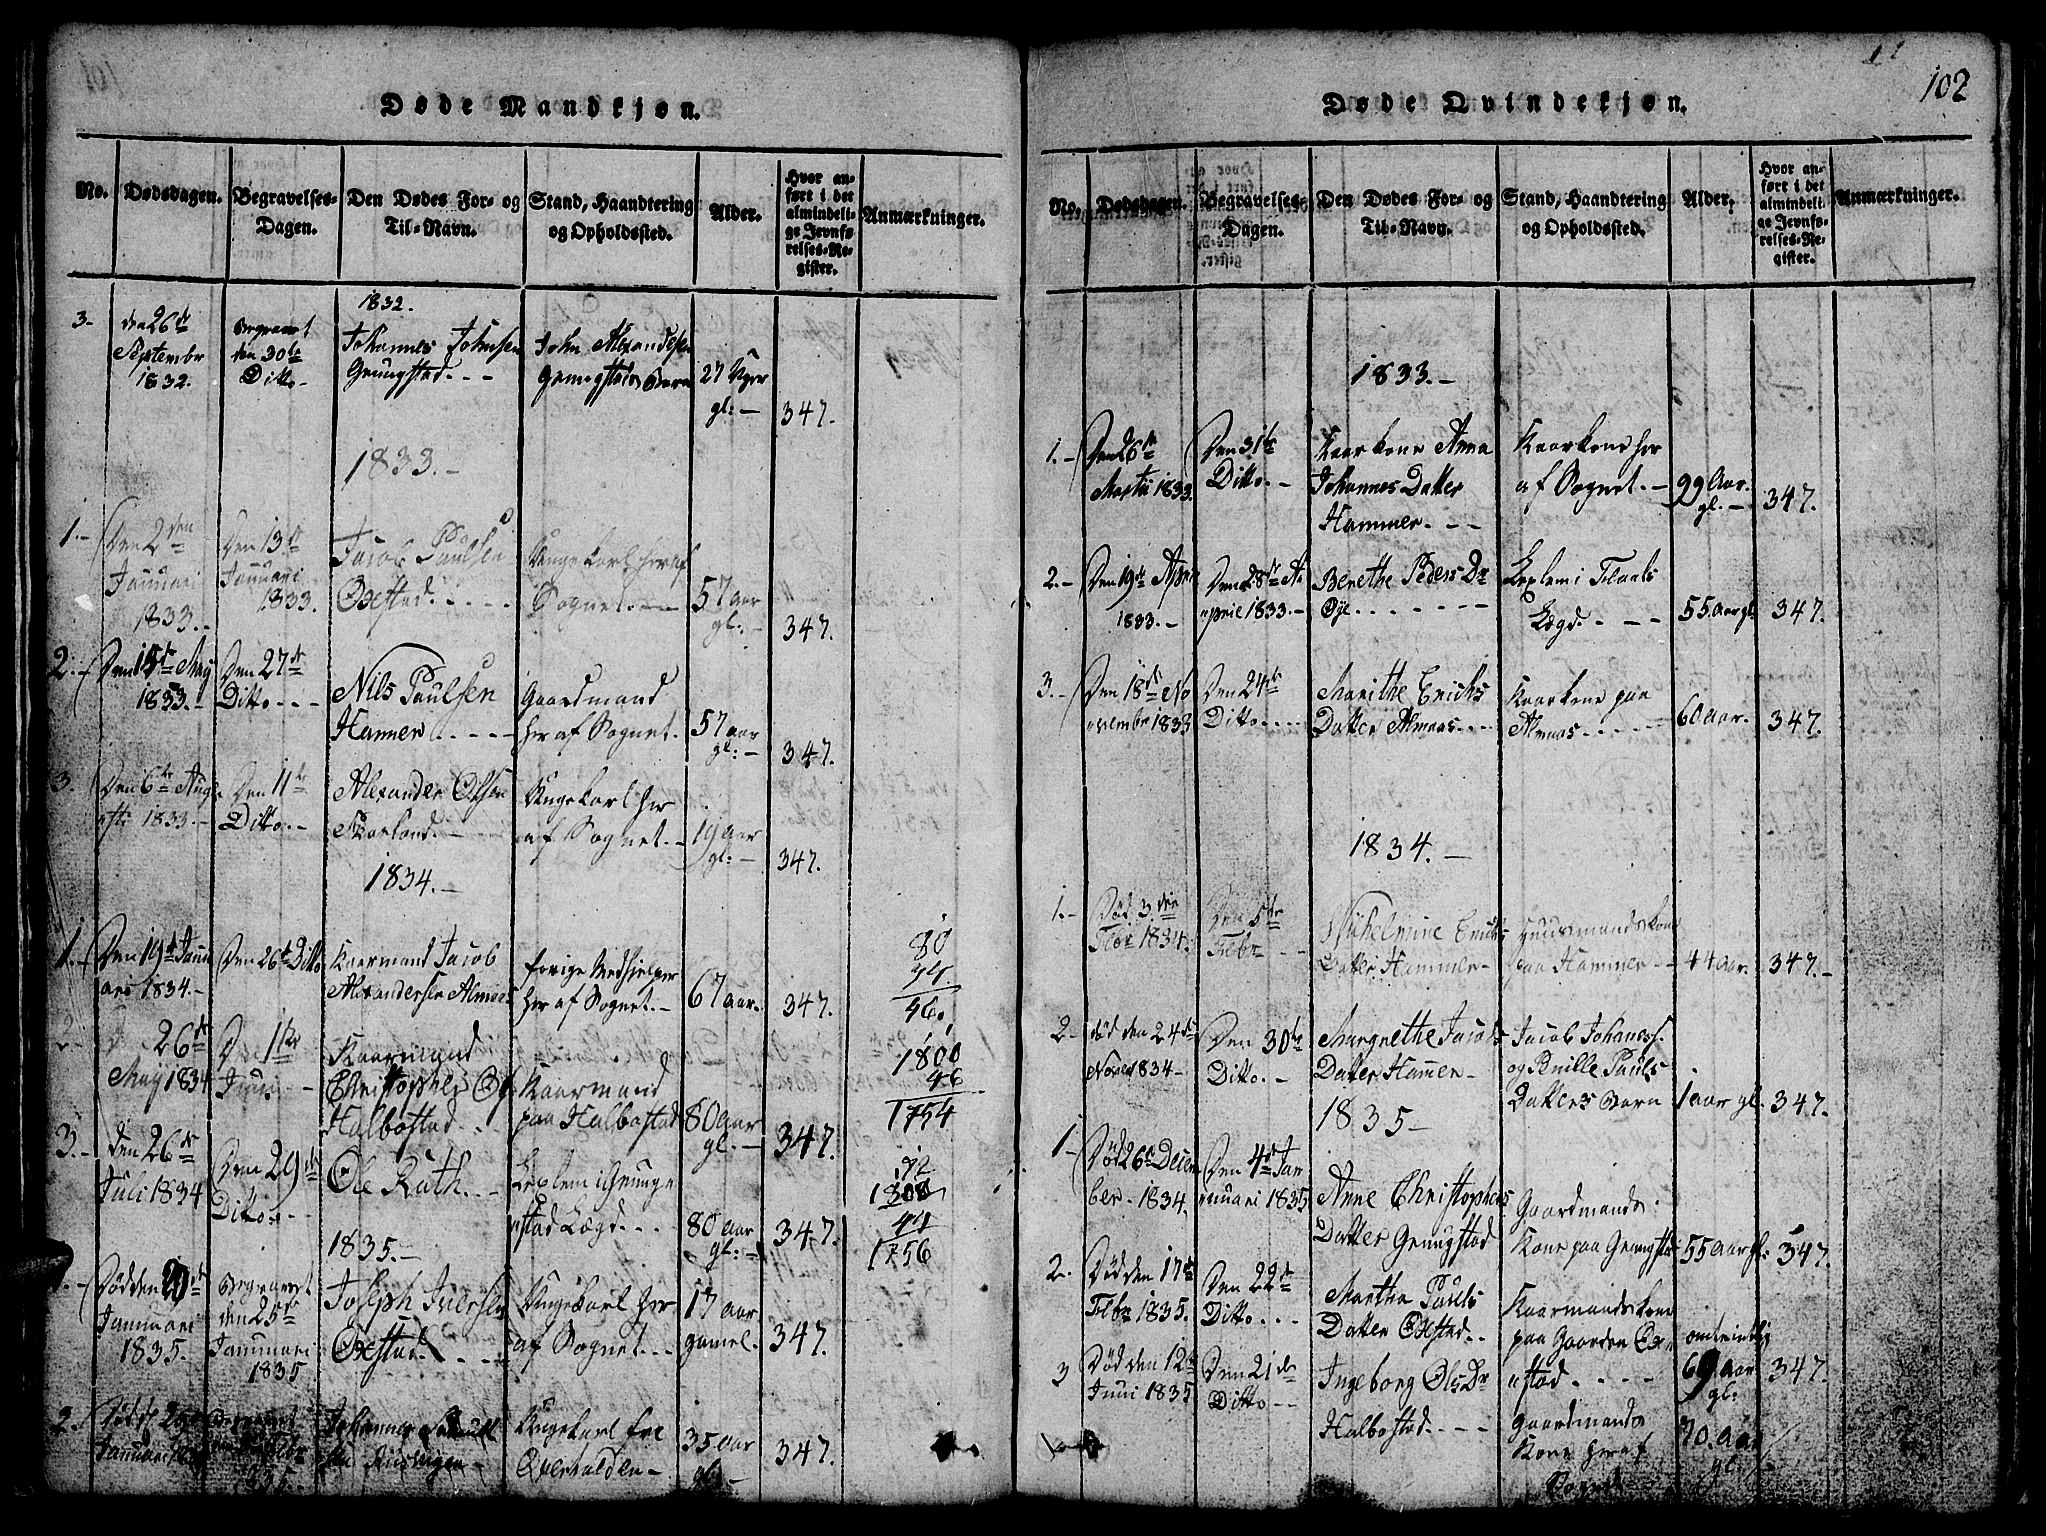 Døde Mandkjøn.
No. Dødsdagen. Begravelses-Dagen. Den Dødes For- og Til-Navn. Stand, Haandtering og Opholdssted. Alder. Hvor anført i det almindelige Jevnførelses-Register. Anmærkninger.
1832.
3- den 26de September 1832. Begravet den 30te Ditto- Johannes Johnsen Grungstad. John Alexandersen Grungstads Barn 27 Uger gl:- 347.
1833.-
1.- Den 2den Januari 1833.- Den 13de Januari 1833. Jacob Paulsen Oxstad. Ungekarl her af Sognet. 57 aar gl:- 347.
2.- Den 15de May 1833.- Den 27de Ditto. Nils Paulsen Hammer. Gaardmand her af Sognet. 57 aar gl:- 347.
3. Den 6te Augusti 1833.- Den 11te Ditto.- Alexander Olsen Skarland. Ungekarl her af Sognet.- 19 aar gl:- 347.
1834.-
1.- Den 19de Januari 1834.- Den 26de Ditto Kaarmand Jacob Alexandersen Almaas forrige Medhjelper her af Sognet.- 67 aar. 347.
80
34
46.
2- 26de May 1834 D. 1te Juni Kaarmand Christopher Ols Halbostad. Kaarmand paa Halbostad 80 aar gl.- 347.
1800
46
1754
3.- den 26de Juli 1834 Den 29de Ditto. Ole Rath. Leglem i Grungstad Lægd. 80 aar gl:- 347.
1800
44
1756
1835.-
1.- Død den 20de Januari 1835. Begravet den 25de Januari 1835 Joseph Iversen Oxstad. Ungekarl her af Sognet. 17 aar gamel. 347.
2. Død d. 29 Januari Begravet Febr 1835. Johannes Ungekarl fra Overhalden- 35 aar gl- 347.
102
Døde Qvindekjøn.
No. Dødsdagen. Begravelses-Dagen. Den Dødes For- og Til-Navn. Stand, Haandtering og Opholdssted. Alder. Hvor anført i det almindelige Jevnførelses-Register. Anmærkninger.
1833.-
1.- Den 26de Martii 1833. Den 31te Ditto.- Kaarkone Anna Johannes Datter Hammer. Kaarkone her af Sognet.- 99 Aar. gl.- 347.
2.- Den 19de April 1833.- Den 28de April 1833.- Berethe Peders Dr Øye. Leglem i Flaats Lægd. 55 aar gl. 347.
3.- Den 18de November 1833 Den 24de Ditto. Marithe Erichs Datter Almaas. Kaarkone paa Almaas. 60 aar. 347.
1834.-
1.- Død 3.die Febr 1834. Den 5te Febr Wilhelmine Erichs Datter Hammer- Huusmandskone paa Hammer 44 aar. 347.-
2- død den 24de Nover 1834- Den 30te Ditto.- Margrethe Jacobs Datter Hamer- Jacob Johanss. og Pernille Pauls Datters Barn 1 aar gl. 347.
1835-
1- Død 26de December 1834. Den 4de Januari 1835 Anne Christophers Datter Grungstad Gaardmands Kone paa Grungstad 55 aar gl. 347.
2. Død den 17de Febr 1835. Den 22de Ditto. Martha Pauls Datter Oxstad. Kaarmandskone paa Gaarden Oxstad. omtrindtlig 69 aar gl: 347.
3 Død den 12te Juni 1835 Den 21de Ditto Ingeborg Ols Dr Halbostad. Gaardmands Kone her af Sognet 70. aar gl.